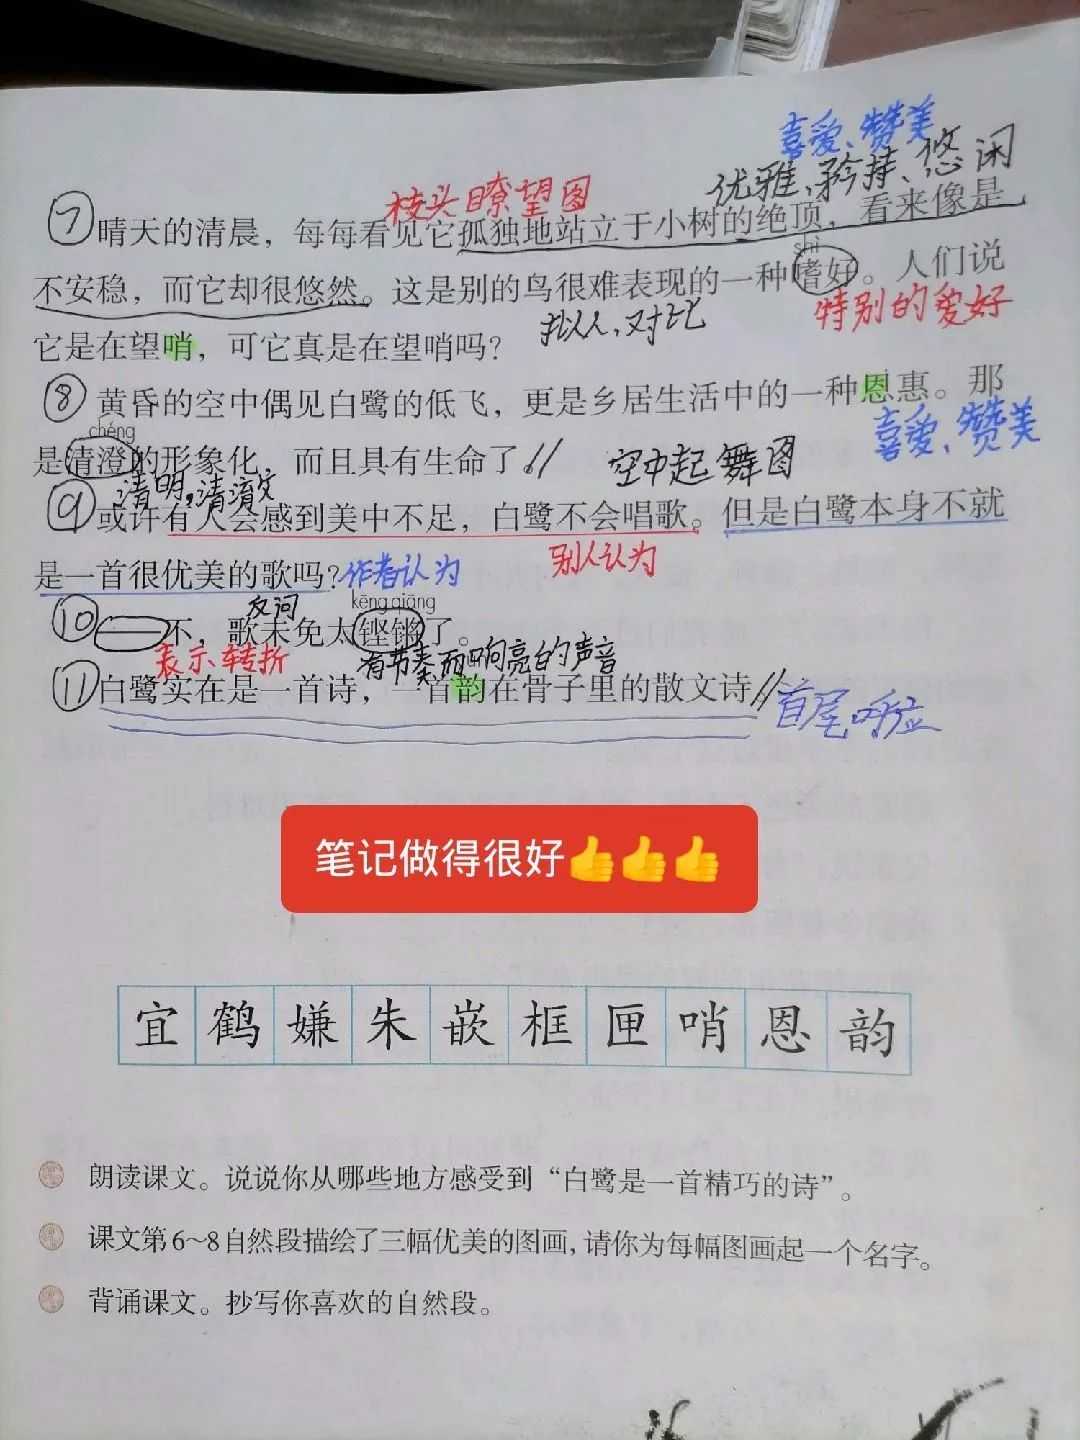 喜爱、赞美
优雅、矜持、悠闲
枝头瞭望图
⑦晴天的清晨，每每看见它孤独地站立于小树的绝顶，看来像是
shì
不安稳，而它却很悠然。这是别的鸟很难表现的一种嗜好。人们说
拟人、对比
特别的爱好
它是在望哨，可它真是在望哨吗？
⑧黄昏的空中偶见白鹭的低飞，更是乡居生活中的一种恩惠。那
喜爱、赞美
chéng
是清澄的形象化，而且具有生命了。//
空中起舞图
清明，清澈
⑨或许有人会感到美中不足，白鹭不会唱歌。但是白鹭本身不就
别人认为
是一首很优美的歌吗？作者认为
反问
kēng qiāng
⑩——不，歌未免太铿锵了。
表示转折
有节奏而响亮的声音
⑪白鹭实在是一首诗，一首韵在骨子里的散文诗//
首尾呼应
笔记做得很好👍👍👍
宜鹤嫌朱嵌框匣哨恩韵
朗读课文。说说你从哪些地方感受到“白鹭是一首精巧的诗”。
课文第6~8自然段描绘了三幅优美的图画，请你为每幅图画起一个名字。
背诵课文。抄写你喜欢的自然段。